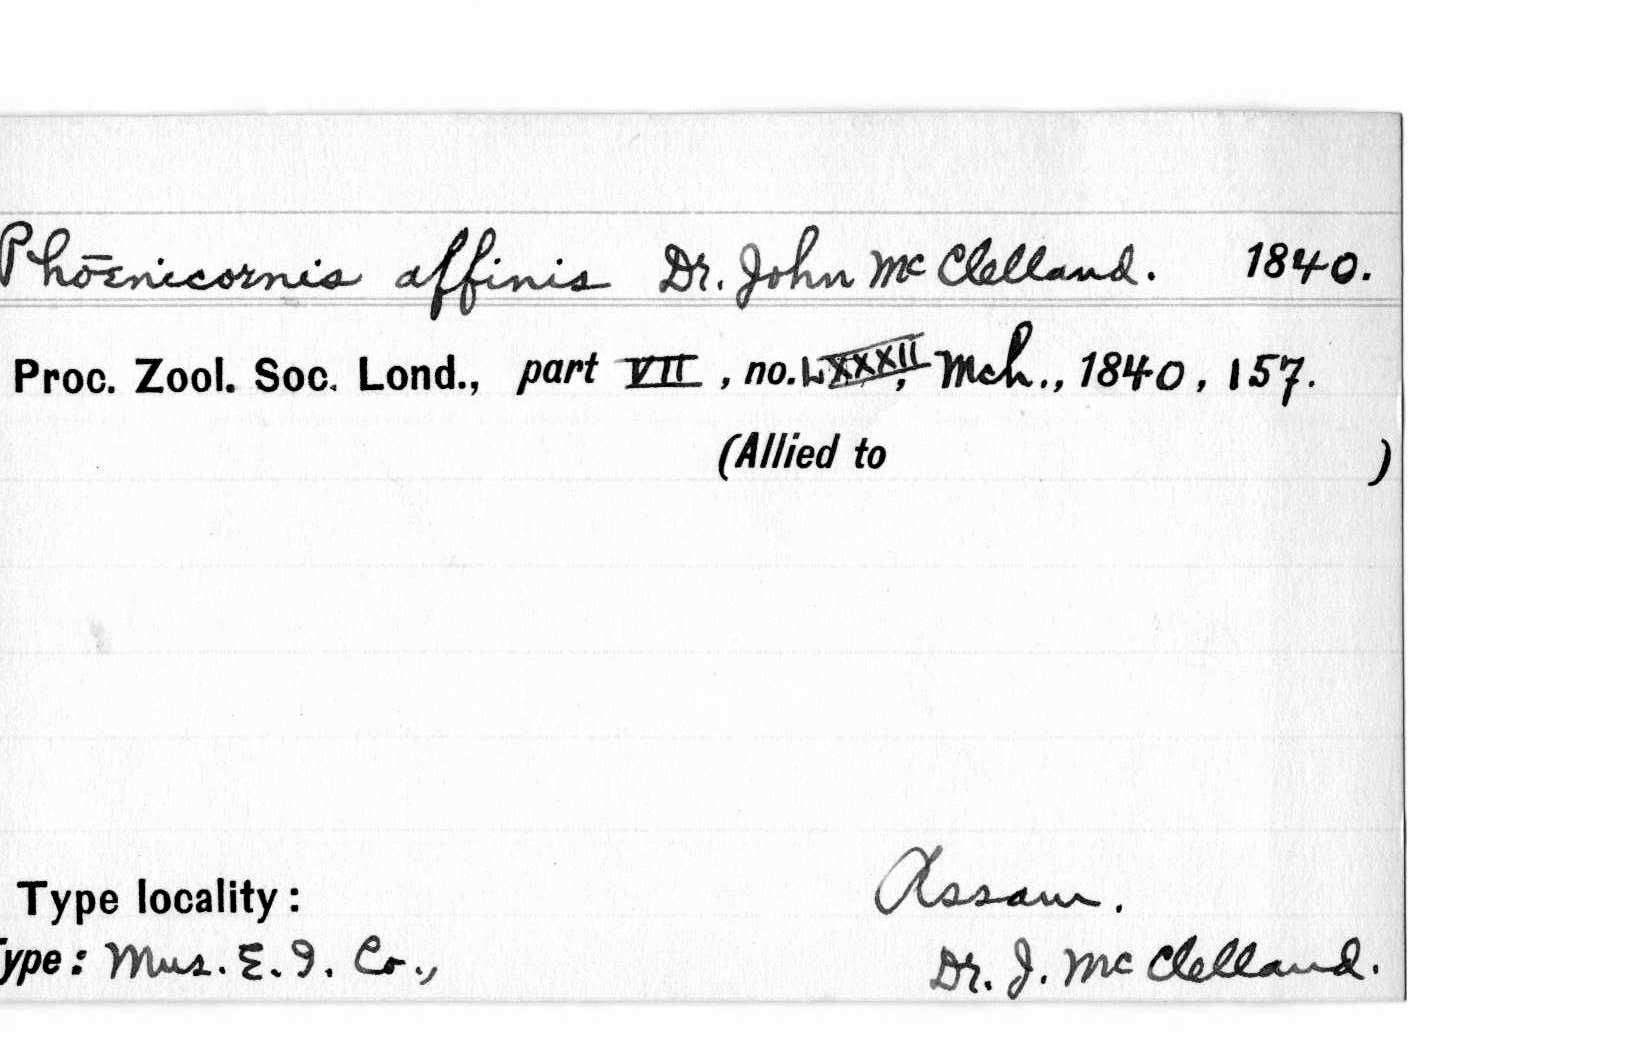 Phōenicornis affinis Dr. John McClelland. 1840.
Proc. Zool. Soc. Lond., part VII, no. LXXXII, Mch., 1840, 157.
(Allied to )
Type locality: Assam.
Type: Mus. E. I. Co., Dr. J. McClelland.